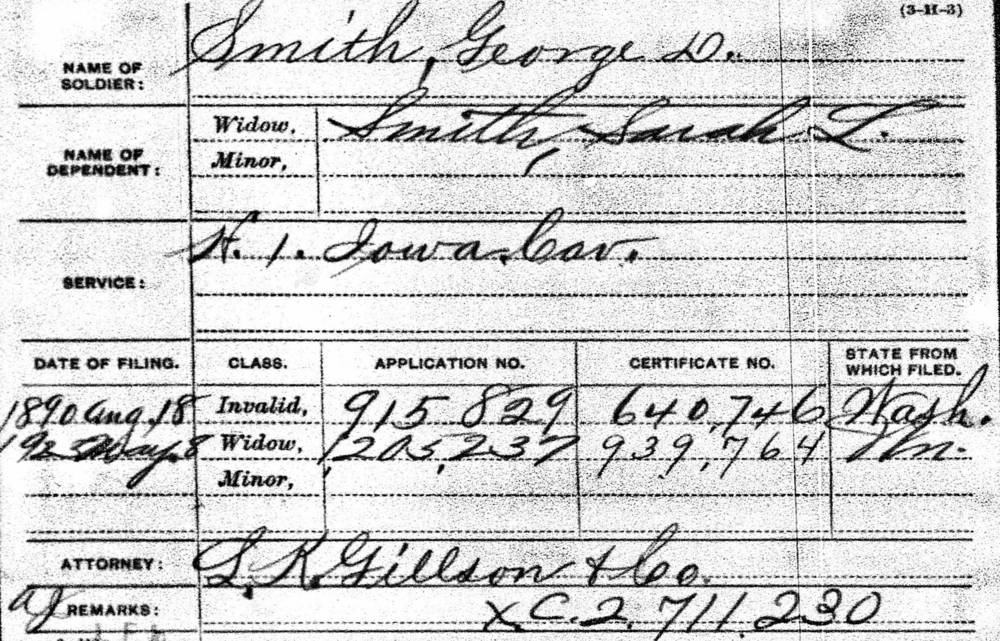 (3-11-3)
NAME OF SOLDIER: Smith, George D.
NAME OF DEPENDENT:
Widow, Smith, Sarah L.
Minor,
SERVICE: H. 1. Iowa Cav.
DATE OF FILING. CLASS. APPLICATION NO. CERTIFICATE NO. STATE FROM WHICH FILED.
1890 Aug. 18 Invalid, 915,829 640,746 Wash.
May 8 Widow, 1,205,237 939,764
Minor,
ATTORNEY: Gillson & Co.
REMARKS: XC.2,711,230